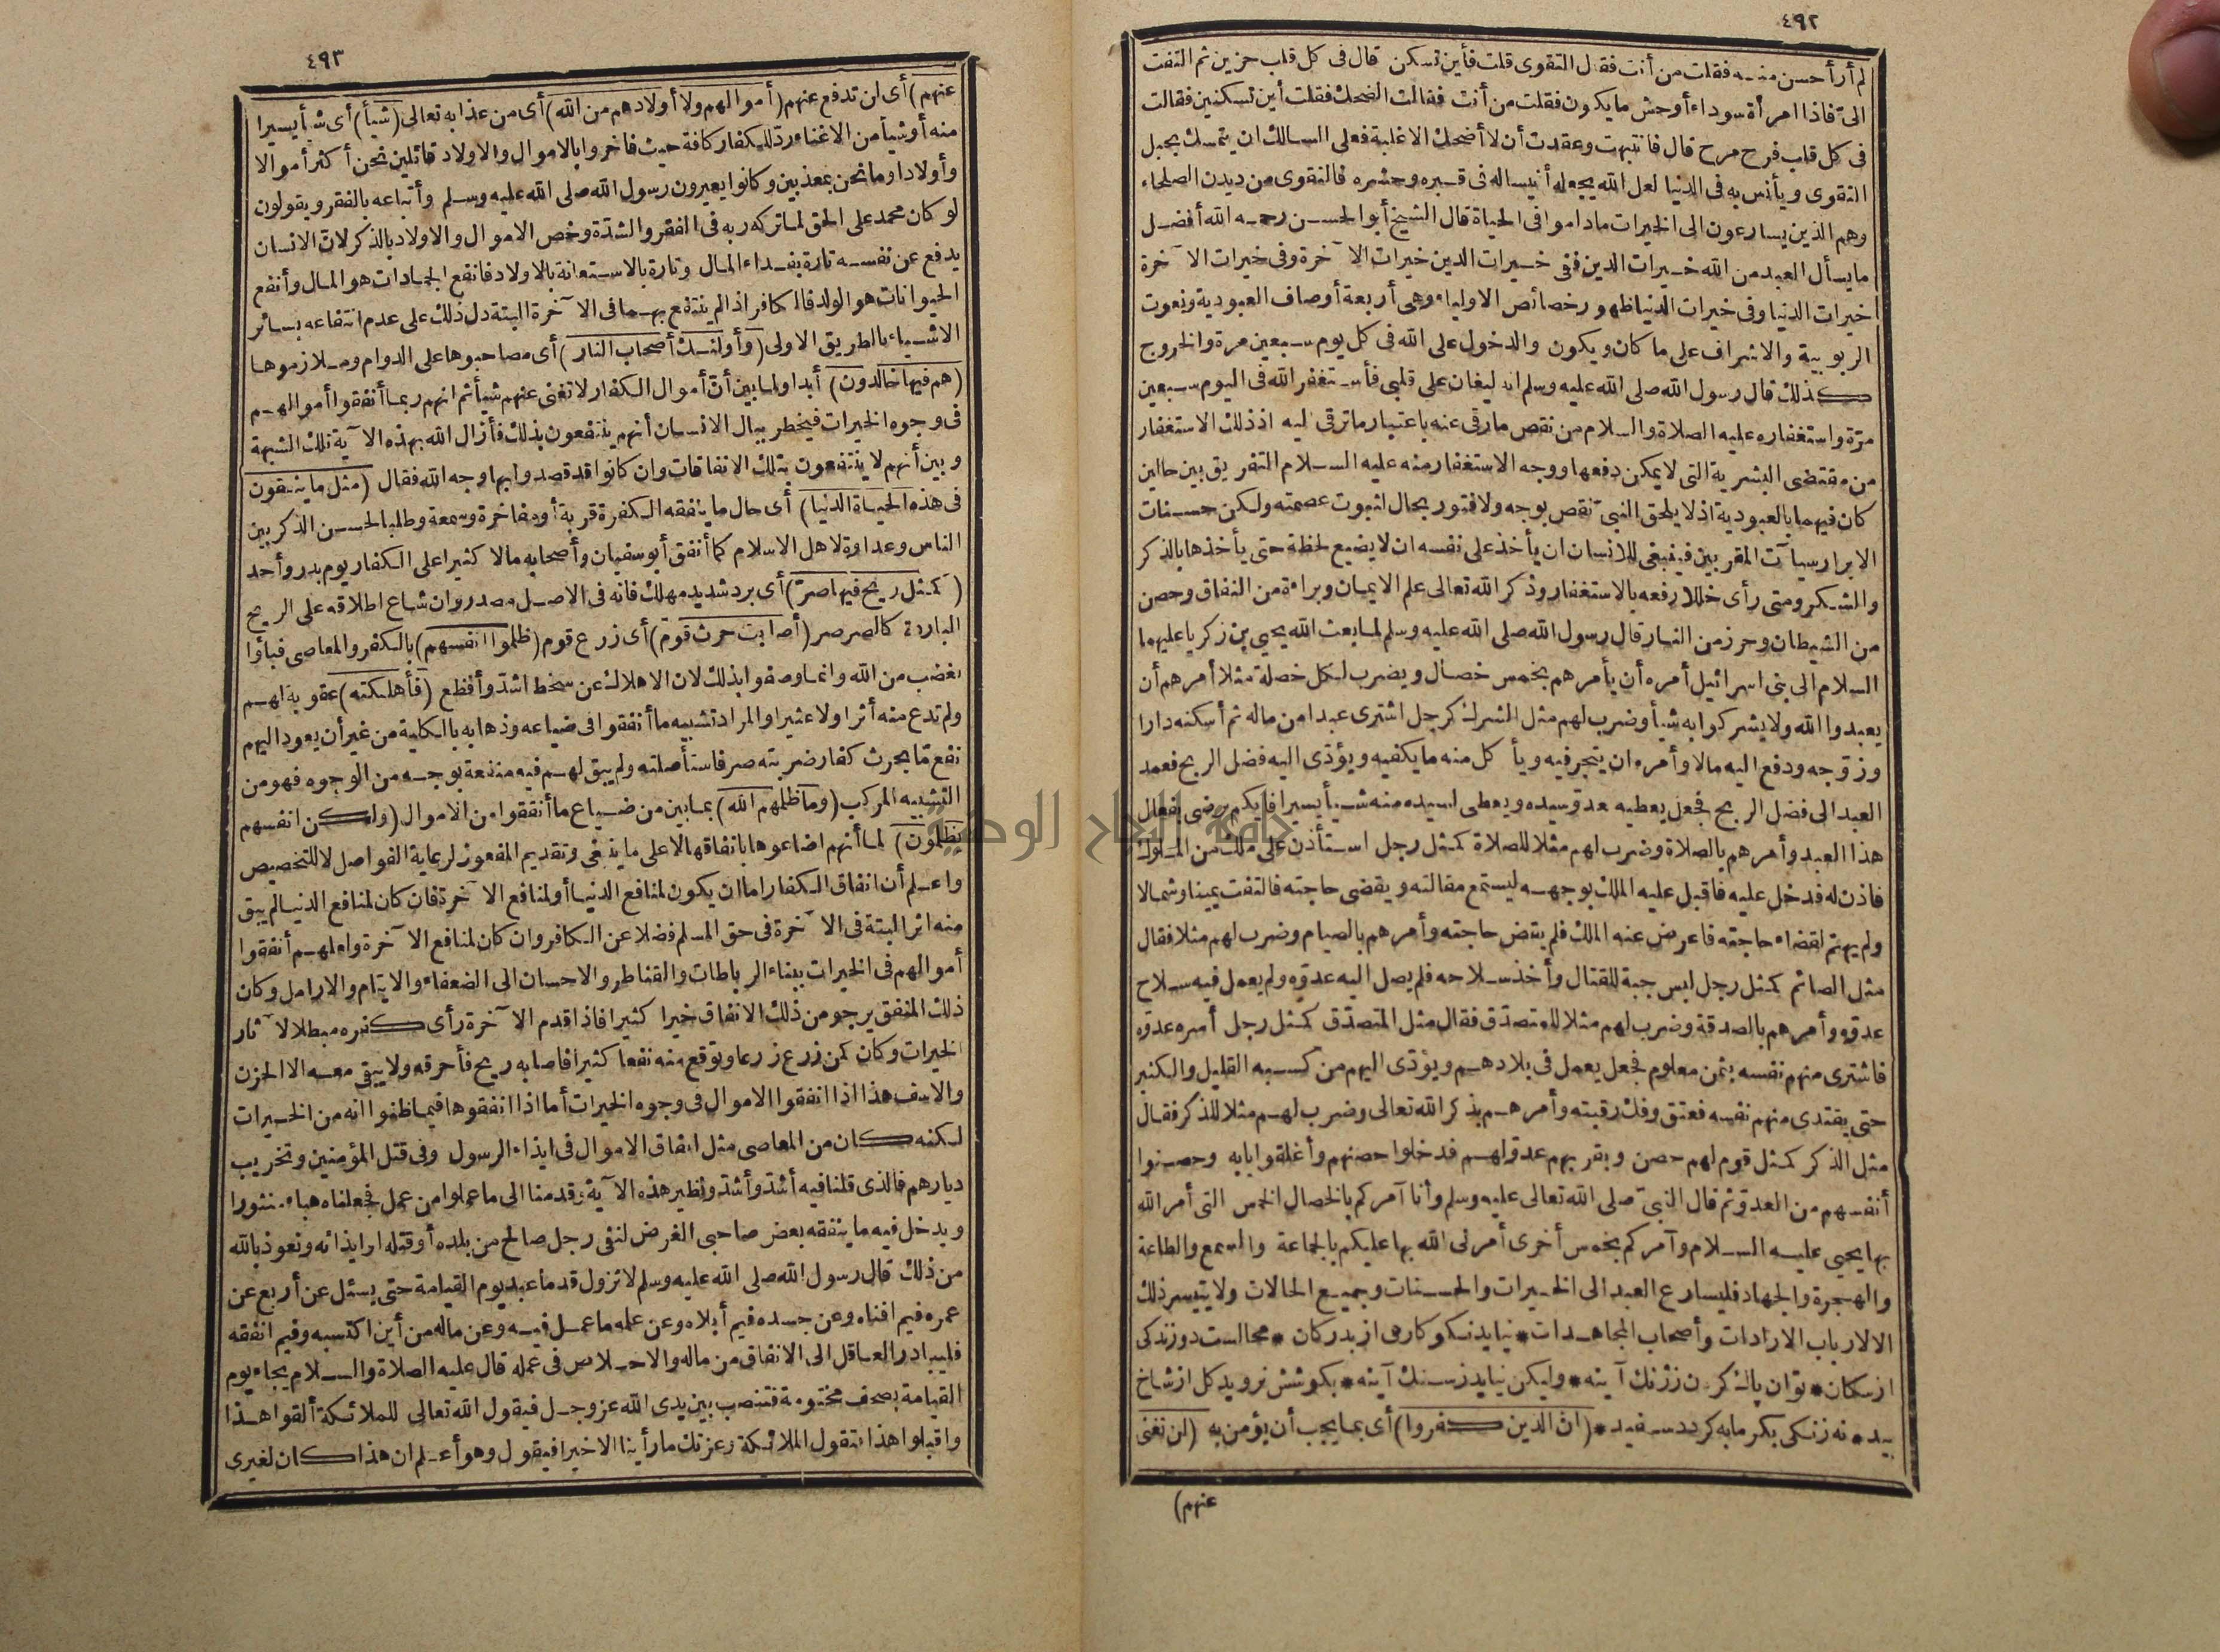 ٤٩٢
لم أر أحسن منه فقلت من أنت فقال التقوى قلت فأين تسكن قال فى كل قلب حزين ثم التفت
الىّ فاذا امرأة سوداء أوحش ما يكون فقلت من أنت فقالت الضحك فقلت أين تسكنين فقالت
فى كل قلب فرح مرح قال فانتبهت وعقدت أن لا أضحك الا غلبة فعلى السالك ان يتمسك بحبل
التقوى ويأنس به فى الدنيا لعل الله يجعله أنيساله فى قبره وحشره فالتقوى من ديدن الصلحاء
وهم الذين يسارعون الى الخيرات ماداموا فى الحياة قال الشيخ أبو الحسن رحمه الله أفضل
ما يسأل العبد من الله خيرات الدين ففى خيرات الدين خيرات الآخرة وفى خيرات الآخرة
خيرات الدنيا وفى خيرات الدنيا ظهور خصائص الاولياء وهى أربعة أوصاف العبودية ونعوت
الربوبية والاشراف على ما كان ويكون والدخول على الله فى كل يوم سبعين مرة والخروج
كذلك قال رسول الله صلى الله عليه وسلم انه ليغان على قلبى فأستغفر الله فى اليوم سبعين
مرّة واستغفاره عليه الصلاة والسلام من نقص مارقى عنه باعتبار ماترقى اليه اذ ذلك الاستغفار
من مقتضى البشرية التى لا يمكن دفعها ووجه الاستغفار منه عليه السلام التفريق بين حالين
كان فيهما بالعبودية اذ لا يلحق النبىّ نقص بوجه ولا فتور بحال لثبوت عصمته ولكن حسنات
الابرار سيآت المقربين فينبغى للانسان ان يأخذ على نفسه ان لا يضيع لحظة حتى يأخذها بالذكر
والشكر ومتى رأى خللا رفعه بالاستغفار وذكر الله تعالى علم الايمان وبراءة من النفاق وحصن
من الشيطان وحرز من النار قال رسول الله صلى الله عليه وسلم لما بعث الله يحيى بن زكريا عليهما
السلام الى بنى اسرائيل أمره أن يأمرهم بخمس خصال ويضرب لكل خصلة مثلا أمرهم أن
يعبدوا الله ولا يشركوا به شيأ وضرب لهم مثل الشرك كرجل اشترى عبدا من ماله ثم أسكنه دارا
وزوّجه ودفع اليه مالا وأمره ان يتجر فيه ويأكل منه ما يكفيه ويؤدّى اليه فضل الربح فعمد
العبد الى فضل الربح فجعل يعطيه عدوّ سيده ويعطى لسيده منه شيأ يسيرا فايكم يرضى بفعال
هذا العبد وأمرهم بالصلاة وضرب لهم مثلا للصلاة كمثل رجل استأذن على ملك من الملوك
فاذن له فدخل عليه فاقبل عليه الملك بوجهه ليستمع مقالته ويقضى حاجته فالتفت يمينا وشمالا
ولم يهتم لقضاء حاجته فاعرض عنه الملك فلم يقض حاجته وأمرهم بالصيام وضرب لهم مثلا فقال
مثل الصائم كمثل رجل لبس جبة للقتال وأخذ سلاحه فلم يصل اليه عدوّه ولم يعمل فيه سلاح
عدوّه وأمرهم بالصدقة وضرب لهم مثلا للمتصدّق فقال مثل المتصدّق كمثل رجل أسره عدوّه
فاشترى منهم نفسه بثمن معلوم فجعل يعمل فى بلادهم ويؤدّى اليهم من كسبه القليل والكثير
حتى يفتدى منهم نفسه فعتق وفك رقبته وأمرهم بذكر الله تعالى وضرب لهم مثلا للذكر فقال
مثل الذكر كمثل قوم لهم حصن وبقربهم عدوّ لهم فدخلوا حصنهم وأغلقوا بابه وحصنوا
أنفسهم من العدوّ ثم قال النبىّ صلى الله تعالى عليه وسلم وأنا آمركم بالخصال الخمس التى أمر الله
بها يحيى عليه السلام وآمركم بخمس أخرى أمرنى الله بها عليكم بالجماعة والسمع والطاعة
والهجرة والجهاد فليسارع العبد الى الخيرات والحسنات وجميع الحالات ولا يتيسر ذلك
الا لارباب الارادات وأصحاب المجاهدات * نيايد نكو كارى از بدركان * محالست دوزندكى
از سكان * توان پاك كردن ز ژنك آينه * وليكن نيايد ز سنك آينه * بكوشش نرويد كل از شاخ
بيد * نه زنكى بكرمابه كردد سفيد * (ان الذين كفروا) أى بما يجب أن يؤمن به (لن تغنى
عنهم)
٤٩٣
عنهم) أى لن تدفع عنهم (أموالهم ولا أولادهم من الله) أى من عذابه تعالى (شيأ) أى شيأ يسيرا
منه أو شيأ من الاغناء ردّ للكفار كافة حيث فاخروا بالاموال والاولاد قائلين نحن أكثر أموالا
وأولادا وما نحن بمعذبين وكانوا يعيرون رسول الله صلى الله عليه وسلم وأتباعه بالفقر ويقولون
لو كان محمد على الحق لما تركه ربه فى الفقر والشدّة وخص الاموال والاولاد بالذكر لان الانسان
يدفع عن نفسه تارة بفداء المال وتارة بالاستعانة بالاولاد فانفع الجمادات هو المال وأنفع
الحيوانات هو الولد فالكافر اذا لم ينتفع بهما فى الآخرة البتة دل ذلك على عدم انتفاعه بسائر
الاشياء بالطريق الاولى (وأولئك أصحاب النار) أى مصاحبوها على الدوام وملازموها
(هم فيها خالدون) أبدا ولما بين أن أموال الكفار لا تغنى عنهم شيأ ثم انهم ربما أنفقوا أموالهم
فى وجوه الخيرات فيخطر ببال الانسان أنهم ينتفعون بذلك فأزال الله بهذه الآية تلك الشبهة
وبين أنهم لا ينتفعون بتلك الانفاقات وان كانوا قد قصدوا بها وجه الله فقال (مثل ما ينفقون
فى هذه الحياة الدنيا) أى حال ما ينفقه الكفرة قربة أو مفاخرة وسمعة وطلبا لحسن الذكر بين
الناس وعداوة لاهل الاسلام كما أنفق أبو سفيان وأصحابه مالا كثيرا على الكفار يوم بدر وأحد
(كمثل ريح فيها صرّ) أى برد شديد مهلك فانه فى الاصل مصدر وان شاع اطلاقه على الريح
الباردة كالصرصر (أصابت حرث قوم) أى زرع قوم (ظلموا انفسهم) بالكفر والمعاصى فباؤا
بغضب من الله وانما وصفوا بذلك لان الاهلاك عن سخط اشدّ وأفظع (فأهلكته) عقوبة لهم
ولم تدع منه أثرا ولا عثيرا والمراد تشبيه ما أنفقوا فى ضياعه وذهابه بالكلية من غير أن يعود اليهم
نفع مّا بحرث كفار ضربته صر فاستأصلته ولم يبق لهم فيه منفعة بوجه من الوجوه فهو من
التشبيه المركب (وما ظلمهم الله) بما بين من ضياع ما أنفقوا من الاموال (ولكن انفسهم
يظلمون) لما أنهم اضاعوها بانفاقها لا على ما ينبغى وتقديم المفعول لرعاية الفواصل لا للتخصيص
واعلم أن انفاق الكفار اما ان يكون لمنافع الدنيا أو لمنافع الآخرة فان كان لمنافع الدنيا لم يبق
منه اثر البتة فى الآخرة فى حق المسلم فضلا عن الكافر وان كان لمنافع الآخرة ولعلهم أنفقوا
أموالهم فى الخيرات ببناء الرباطات والقناطر والاحسان الى الضعفاء والايتام والارامل وكان
ذلك المنفق يرجو من ذلك الانفاق خيرا كثيرا فاذا قدم الآخرة رأى كفره مبطلا لآثار
الخيرات وكان كمن زرع زرعا وتوقع منه نفعا كثيرا فاصابه ريح فأحرقه ولا يبقى معه الا الحزن
والاسف هذا اذا انفقوا الاموال فى وجوه الخيرات أما اذا انفقوها فيما ظنوا انه من الخيرات
لكنه كان من المعاصى مثل انفاق الاموال فى ايذاء الرسول وفى قتل المؤمنين وتخريب
ديارهم فالذى قلنا فيه أشدّ وأشدّ ونظير هذه الآية وقدمنا الى ما عملوا من عمل فجعلناه هباء منثورا
ويدخل فيه ما ينفقه بعض صاحبى الغرض لنفى رجل صالح من بلده أو قتله او ايذائه ونعوذ بالله
من ذلك قال رسول الله صلى الله عليه وسلم لا تزول قدما عبد يوم القيامة حتى يسئل عن أربع عن
عمره فيم افناه وعن جسده فيم أبلاه وعن علمه ما عمل فيه وعن ماله من أين اكتسبه وفيم انفقه
فليبادر العاقل الى الانفاق من ماله والاخلاص فى عمله قال عليه الصلاة والسلام يجاء يوم
القيامة بصحف مختومة فتنصب بين يدى الله عز وجل فيقول الله تعالى للملائكة ألقوا هذا
واقبلوا هذا فتقول الملائكة وعزتك ما رأينا الا خيرا فيقول وهو أعلم ان هذا كان لغيرى